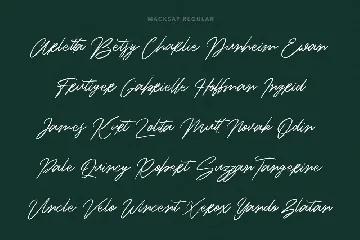 MACKSAY REGULAR
Arletta Betty Charlie Durnheim Ewan
Frutiger Gabrielle Hoffman Ingrid
James Kurt Lolita Mutt Novak Odin
Pale Quincy Robert Suzzan Tangerine
Uncle Velo Wincent Xerox Yando Zlatan